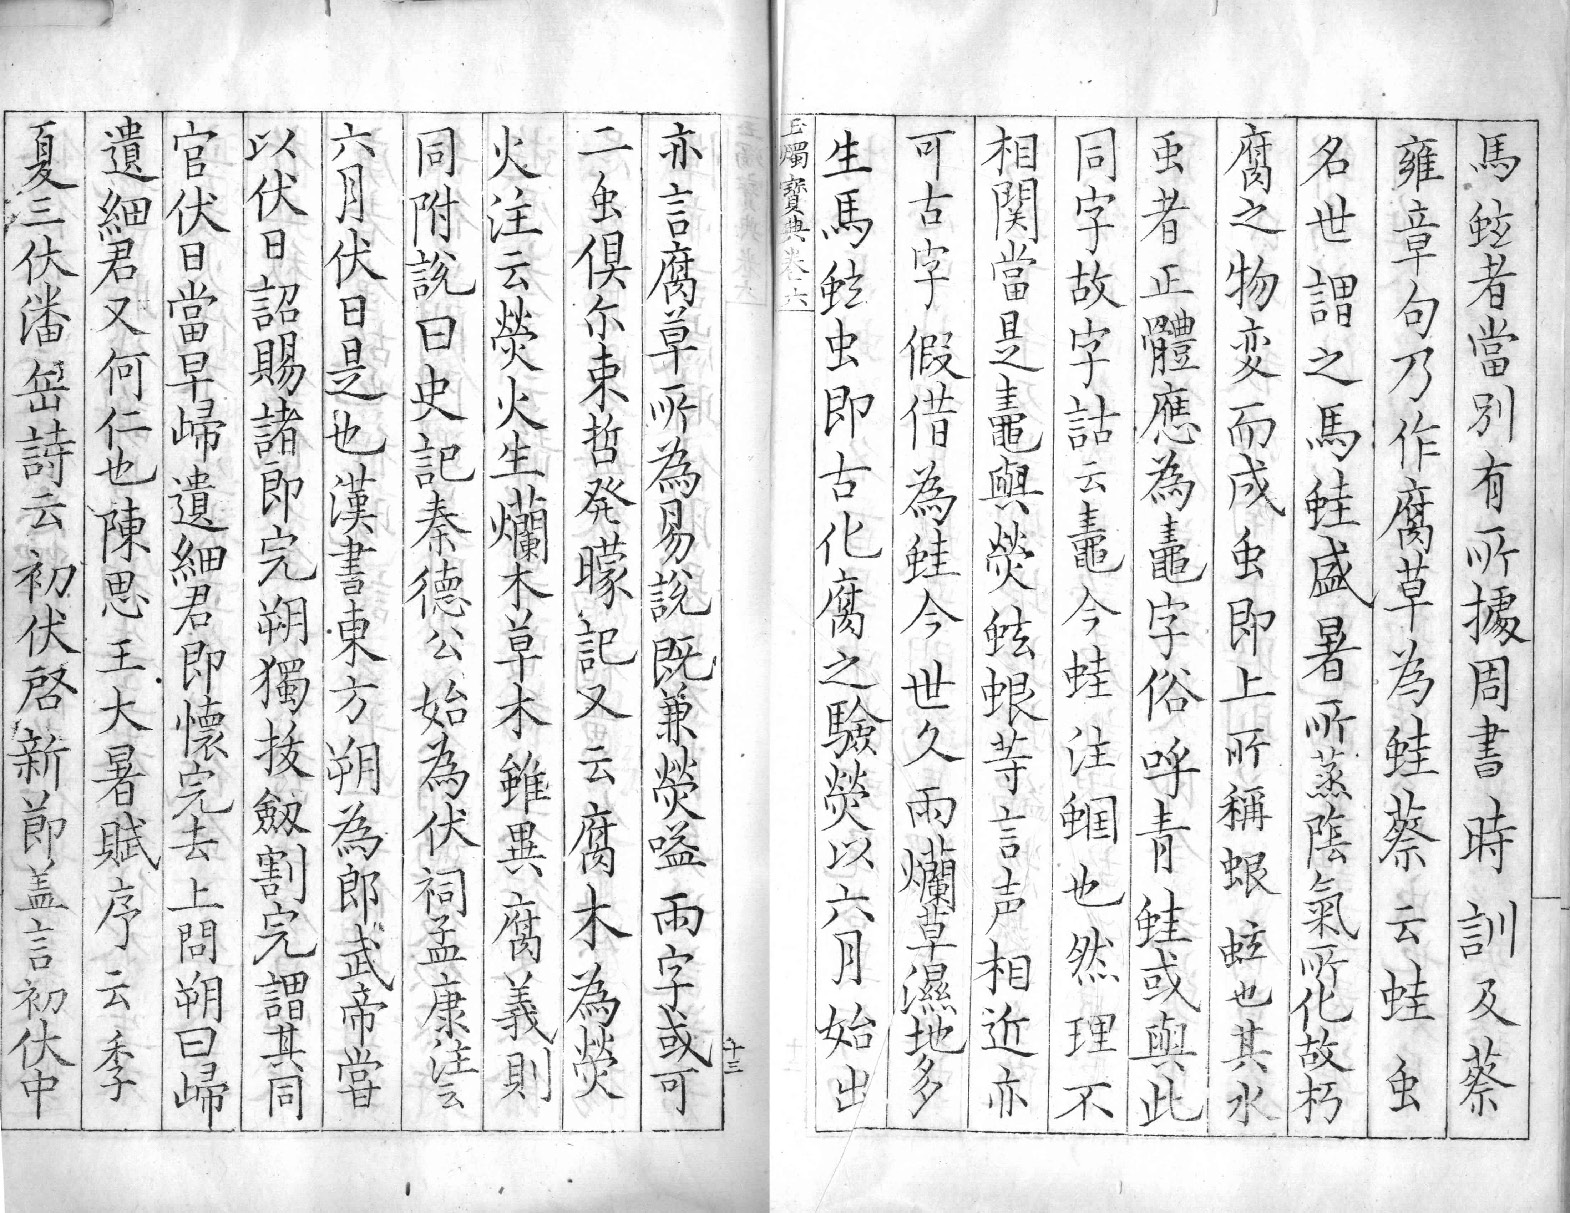 馬蚿者當別有所據周書時訓及蔡
雍章句乃作腐草為蛙蔡云蛙虫
名世謂之馬蛙盛暑所蒸陰氣所化故朽
腐之物変而成虫即上所稱蛝蚿也其水
虫者正體應為鼃字俗呼青蛙或與此
同字故字詁云鼃今蛙注蝈也然理不
相関當是鼃與熒蚿蛝等言声相近亦
可古字假借為蛙今世久雨爛草濕地多
生馬蚿虫即古化腐之驗熒以六月始出
玉燭寶典卷六
十三
亦言腐草所為易說既兼熒嗌兩字或可
二虫俱尓束晢発矇記又云腐木為熒
火注云熒火生爛木草木雖異腐義則
同附說曰史記秦德公始為伏祠孟康注云
六月伏日是也漢書東方朔為郎武帝嘗
以伏日詔賜諸郎完朔獨拔劔割完謂其同
官伏日當早歸遺細君即懷完去上問朔曰歸
遺細君又何仁也陳思王大暑賦序云季
夏三伏潘岳詩云初伏啓新節盖言初伏中